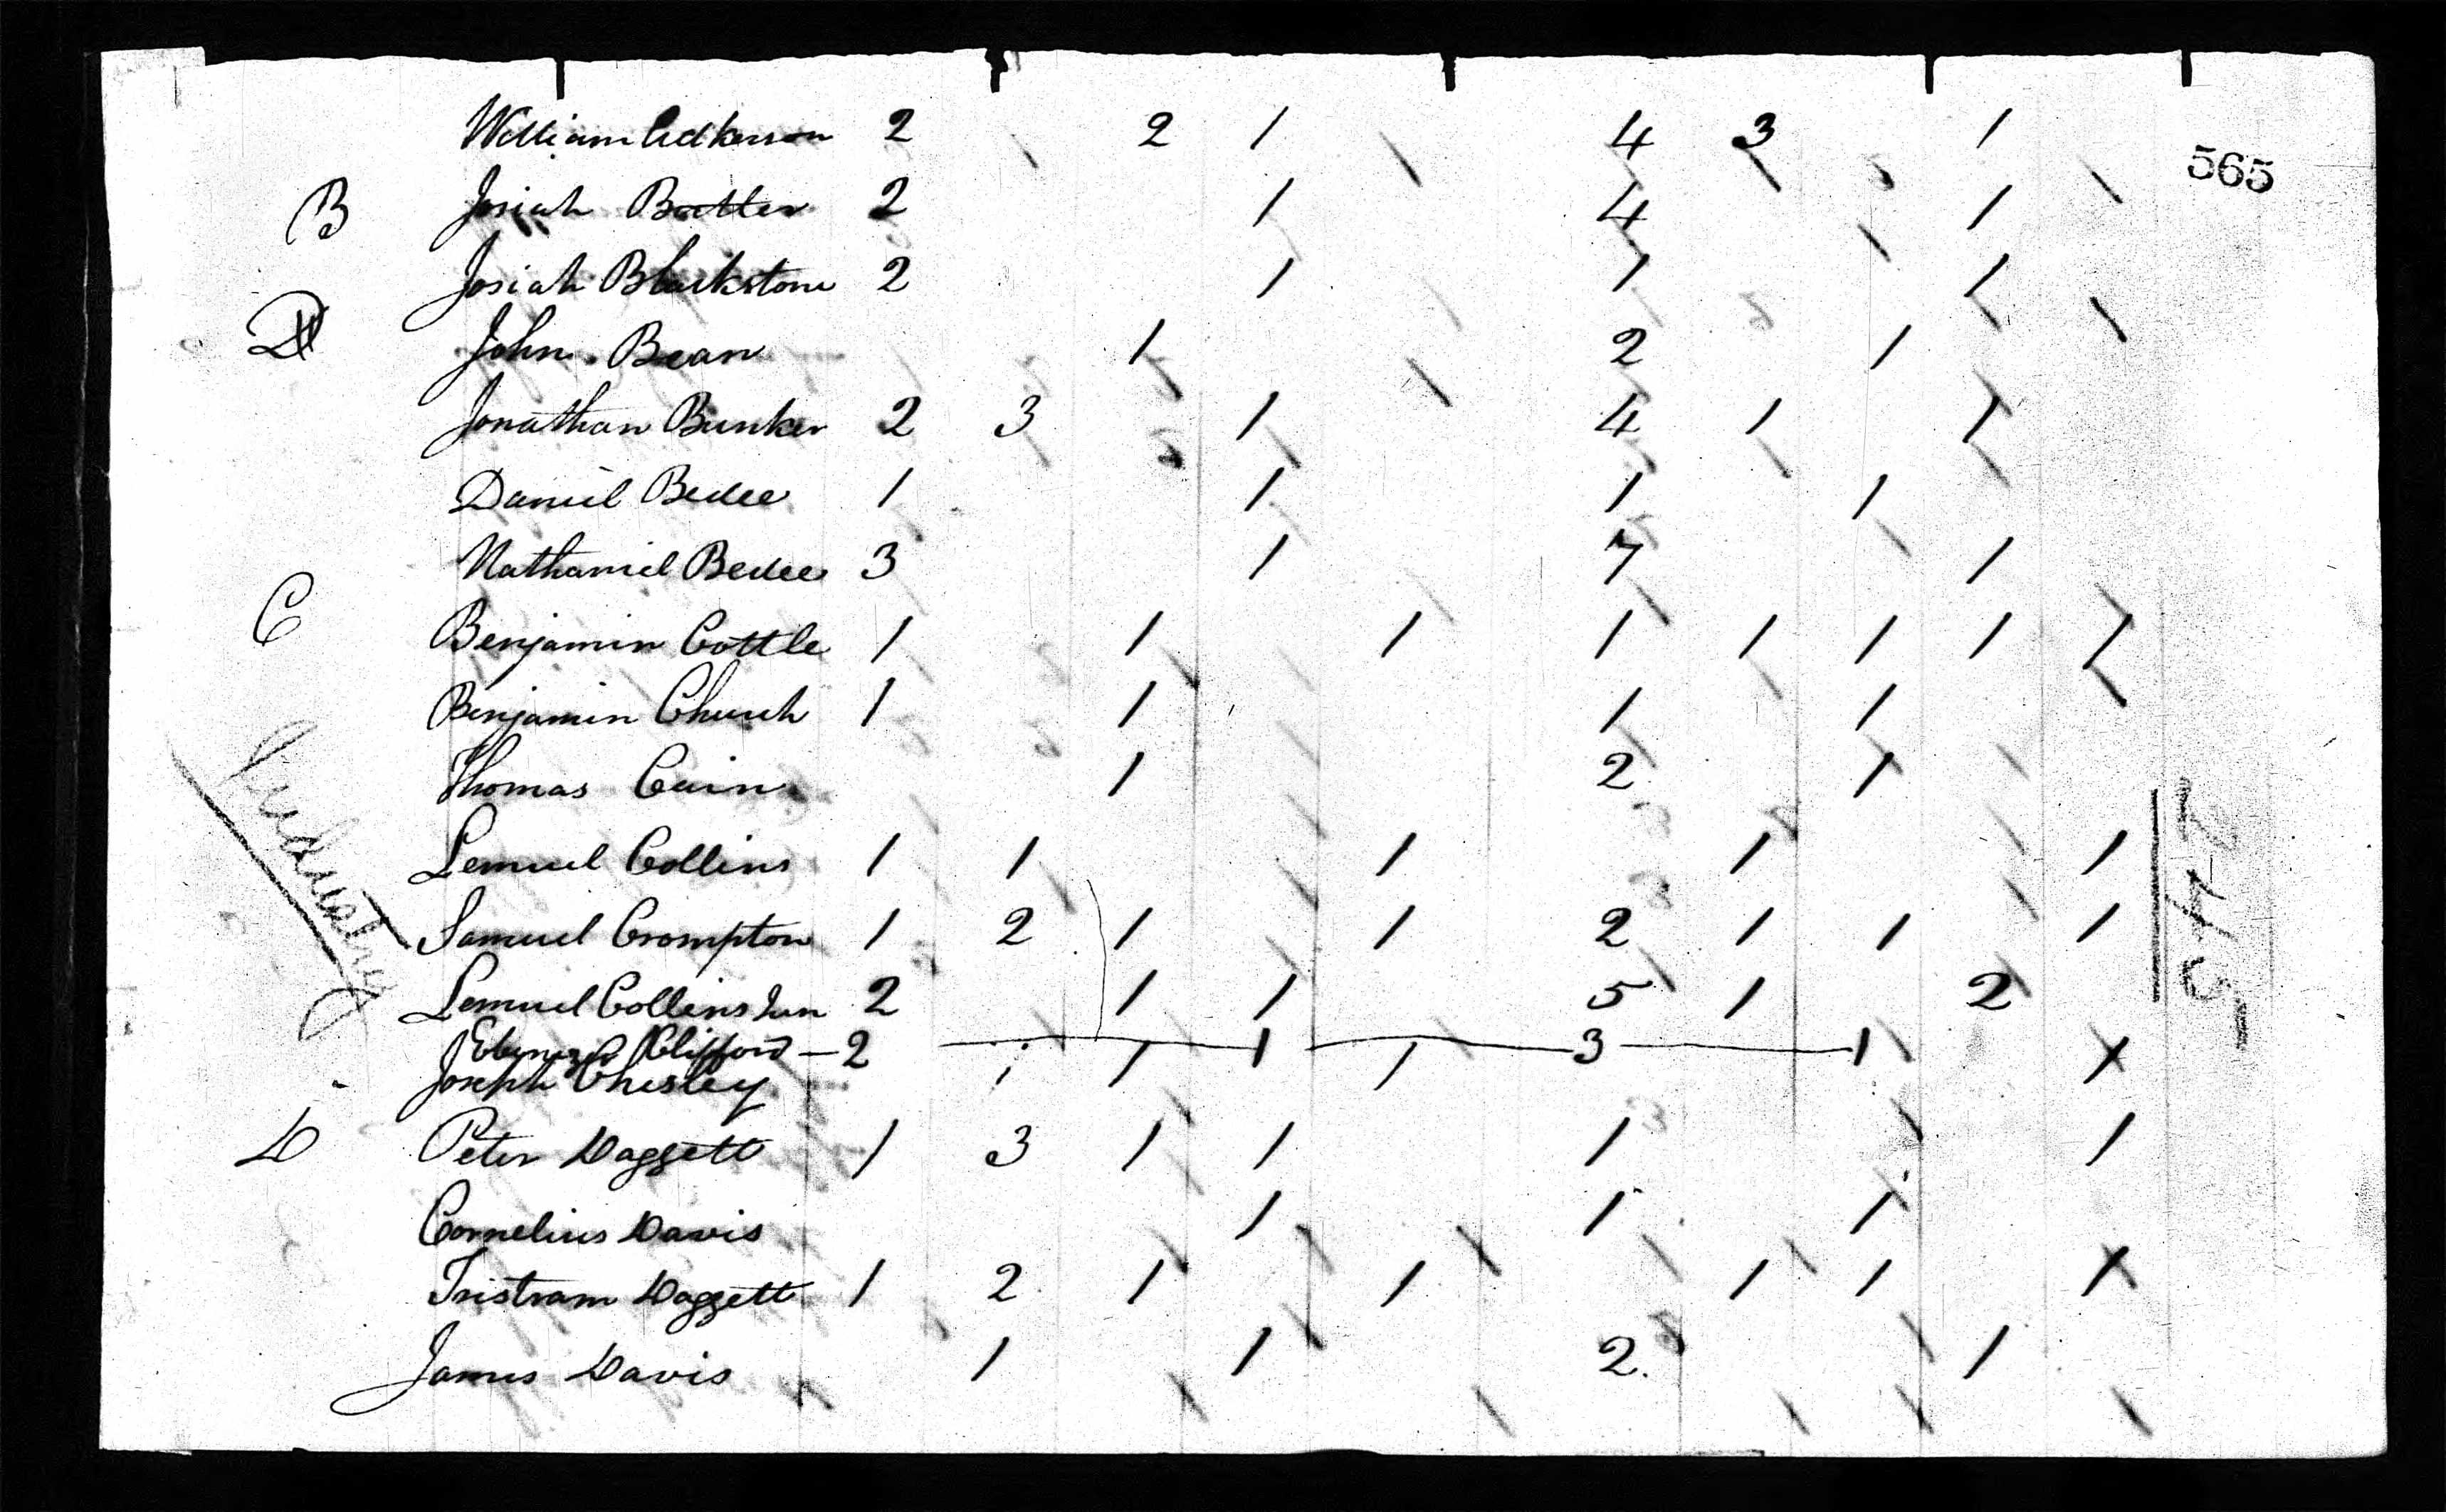 William Adkinson 2 2 1 4 3 1
565
B Josiah Batter 2 1 4 1
Josiah Blackstone 2 1 1 1
John Bean 1 2 1
Jonathan Bunker 2 3 1 4 1 1
Daniel Bedee 1 1 1 1
Nathaniel Bedee 3 1 7 1
C Benjamin Cottle 1 1 1 1 1 1 1 1
Benjamin Church 1 1 1 1
Thomas Cain 1 2 1
Lemuel Collins 1 1 1 1 1
Samuel Crompton 1 2 1 1 2 1 1 1
Lemuel Collins Jun 2 1 1 5 1 2
Ebenezer Clifford — 2 — 1 — 3 — 1
Joseph Chesley 1 1 1 1
D Peter Daggett 1 3 1 1 1 1
Cornelius Davis 1 1 1
Tristram Daggett 1 2 1 1 1 1 1
James Davis 1 1 2. 1